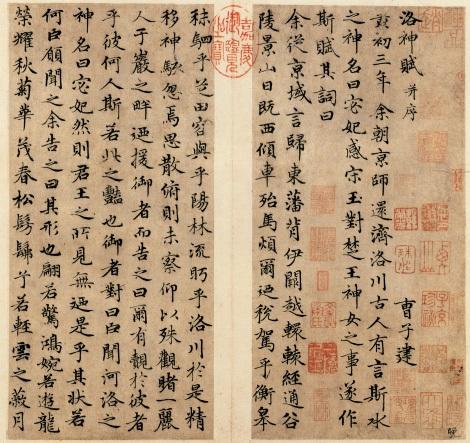 洛神賦 并序
曹子建
黃初三年余朝京師還濟洛川古人有言斯水
之神名曰宓妃感宋玉對楚王神女之事遂作
斯賦其詞曰
余從京域言歸東藩背伊闕越轘轅經通谷
陵景山日既西傾車殆馬煩爾迺稅駕乎蘅皋
秣駟乎芝田容與乎陽林流眄乎洛川於是精
移神駭忽焉思散俯則未察仰以殊觀睹一麗
人于巖之畔迺援御者而告之曰爾有覿於彼者
乎彼何人斯若此之豔也御者對曰臣聞河洛之
神名曰宓妃然則君王之所見無迺是乎其狀若
何臣願聞之余告之曰其形也翩若驚鴻婉若遊龍
榮耀秋菊華茂春松髣髴乎若輕雲之蔽月
嘉慶御覽之寶